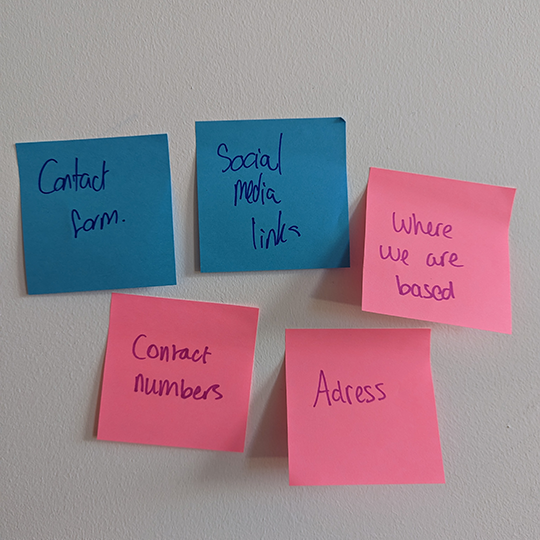 Contact
form.
Social
media
links
Where
we are
based
Contact
numbers
Adress